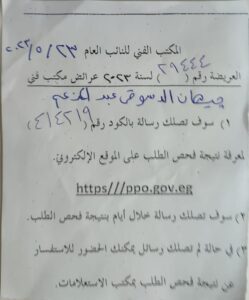 ٢٠٢٣/٥/٢٣
المكتب الفني للنائب العام
العريضة رقم (٢٩٤٤٤) لسنة ٢٠٢٣ عرائض مكتب فني
جيهان الدسوقى عبد المنعم
١) سوف تصلك رسالة بالكود رقم (٤١٤٢١٩)
لمعرفة نتيجة فحص الطلب على الموقع الإلكتروني.
https///ppo.gov.eg
٢) سوف تصلك رسالة خلال أيام بنتيجة فحص الطلب.
٣) في حالة لم تصلك رسائل يمكنك الحضور للاستفسار
عن نتيجة فحص الطلب بمكتب الاستعلامات.